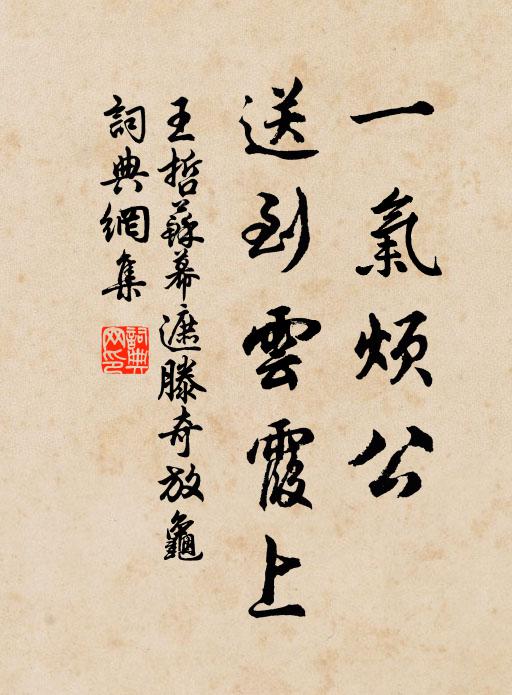 一氣煩公
送到雲霞上
王哲蘇幕遮滕奇放龜
詞典網集
詞典网印